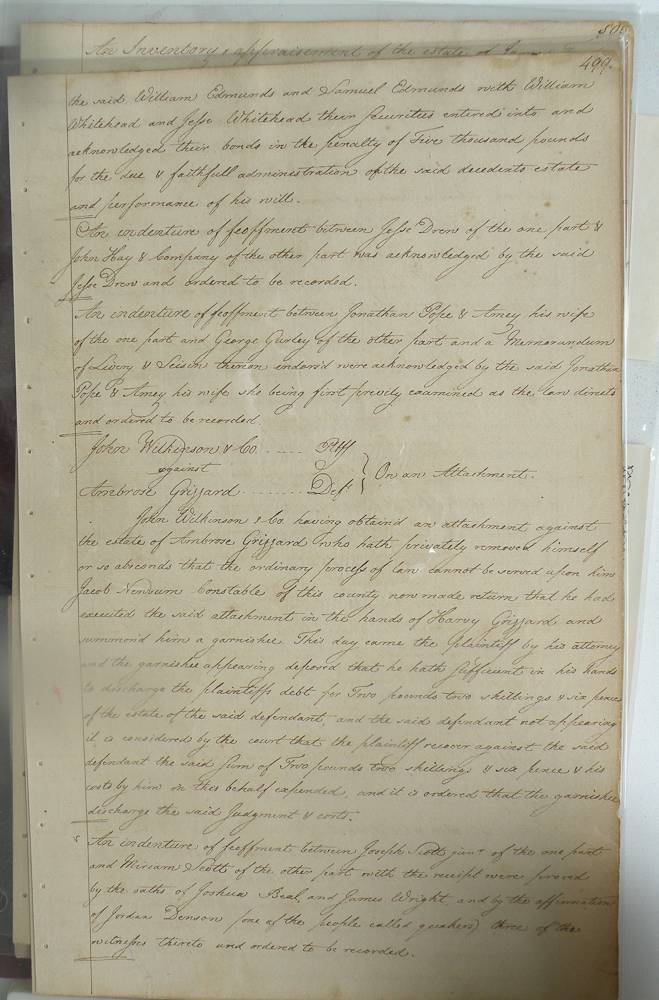 500
An Inventory & appraisement of the estate of
499.
the said William Edmunds and Samuel Edmunds with William
Whitehead and Jesse Whitehead their Securities entered into and
acknowledged their bonds in the penalty of Five thousand pounds
for the due & faithfull administration of the said decedents estate
and performance of his will.
An indenture of feoffment between Jesse Drew of the one part &
John Hay & Company of the other part was acknowledged by the said
Jesse Drew and ordered to be recorded.
An indenture of feoffment between Jonathan Pope & Amey his wife
of the one part and George Gurley of the other part and a Memorandum
of Livery & Seisin thereon endors'd were acknowledged by the said Jonathan
Pope & Amey his wife she being first privily examined as the law directs
and ordered to be recorded.
John Wilkinson & Co. ..... Pltff
against
Ambrose Grizzard ......... Deft. } On an Attachment.
John Wilkinson & Co. having obtain'd an attachment against
the estate of Ambrose Grizzard who hath privately removed himself
or so absconds that the ordinary process of law cannot be served upon him
Jacob Newsum Constable of this county now made return that he had
executed the said attachment in the hands of Harvy Grizzard and
summond him a garnishee This day came the plaintiff by his attorney
and the garnishee appearing deposed that he hath sufficient in his hands
to discharge the plaintiffs debt for Two pounds two shillings & six pence
of the estate of the said defendant, and the said defendant not appearing
it is considered by the court that the plaintiff recover against the said
defendant the said Sum of Two pounds two shillings & six pence & his
costs by him in this behalf expended, and it is ordered that the garnishee
discharge the said Judgment & costs.
An indenture of feoffment between Joseph Scott junr. of the one part
and Miriam Scott of the other part with the receipt were proved
by the oaths of Joshua Beal, and James Wright, and by the affirmation
of Jordan Denson (one of the people called quakers) three of the
witnesses thereto and ordered to be recorded.